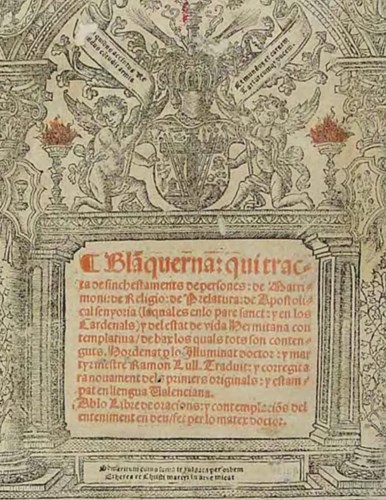 ¶ Blāquerna: qui trac-
ta de sinch estaments de persones: de Matri-
moni: de Religio: de Prelatura: de Apostoli-
cal senyoria (laqual es en lo pare sanct: y en los
Cardenals) y del estat de vida Hermitana con
templatiua / de bax los quals tots son conten-
guts. Hordenat p lo Illuminat doctor: y mar
tyr mestre Ramon Lull. Traduit: y corregit a
ra nouament dels primers originals: y estam-
pat en llengua Valenciana.
Ablo Libre de oracions: y contemplaciōs del
enteniment en deu / fet per lo matex doctor.
per orbem
Etherea et Christi martyr in arce micat